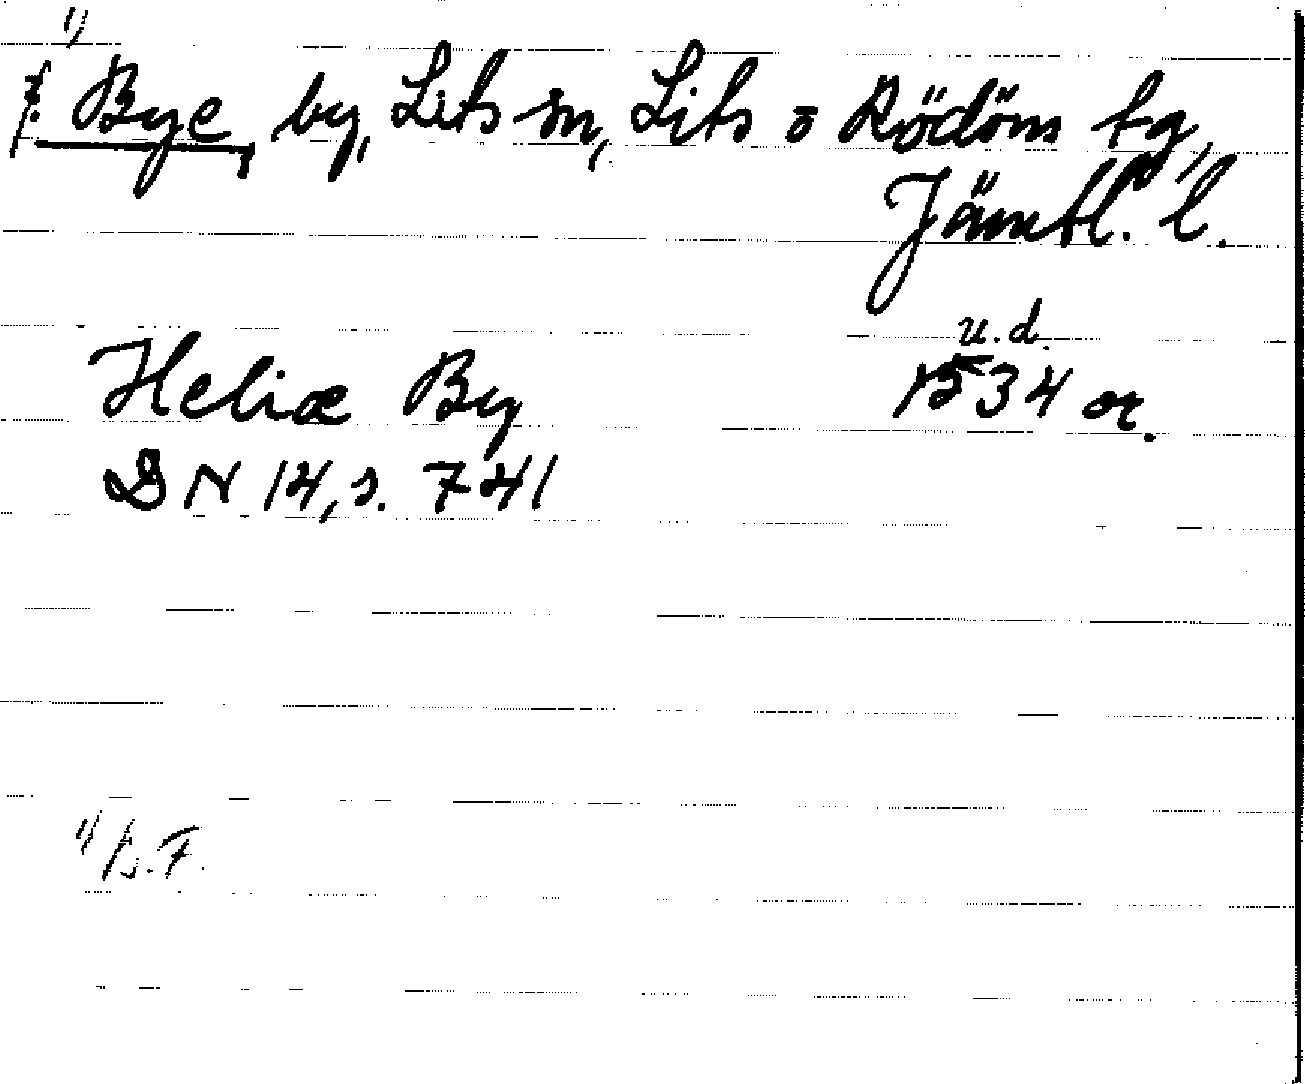 1)
Bye, by, Lits sn, Lits o Rödöns tg,
Jämtl. l.
u.d.
Heliæ By 1534 or.
DN 14, s. 741
1) B.F.